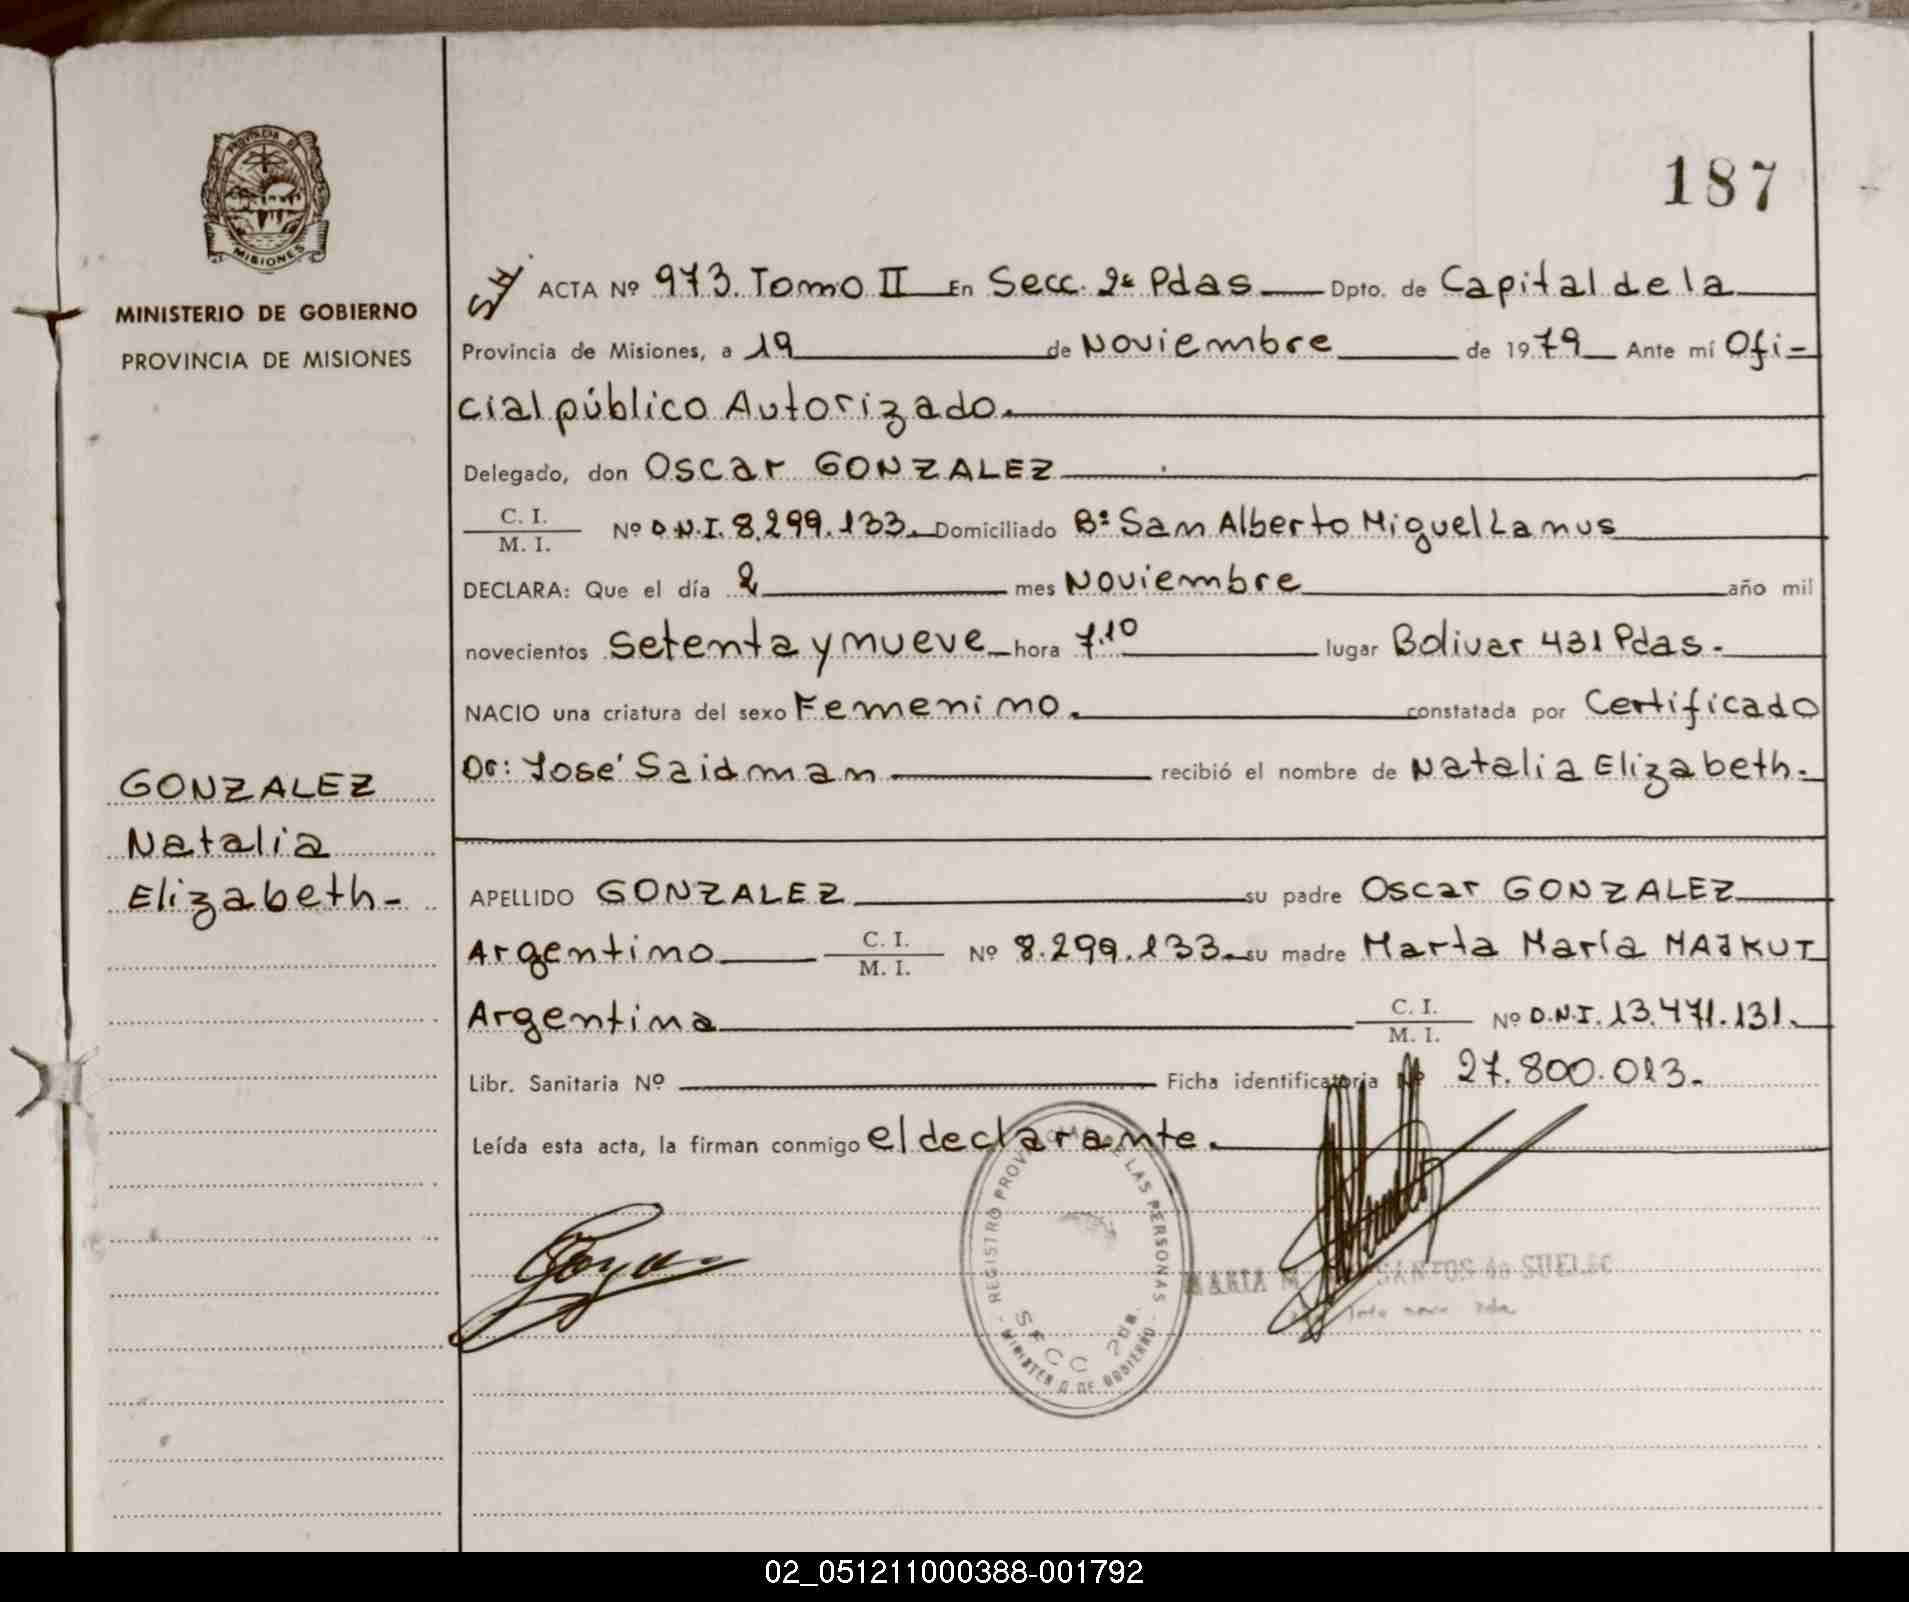 187
PROVINCIA DE
MISIONES
MINISTERIO DE GOBIERNO
PROVINCIA DE MISIONES
GONZALEZ
Natalia
Elizabeth-
S/H ACTA Nº 973. Tomo II En Secc. 2ª Pdas Dpto. de Capital de la
Provincia de Misiones, a 19 de Noviembre de 1979 Ante mí Ofi-
cial público Autorizado.
Delegado, don Oscar GONZALEZ
C. I.
M. I. Nº D.N.I. 8.299.133. Domiciliado Bº San Alberto Miguel Lanus
DECLARA: Que el día 2 mes Noviembre año mil
novecientos setenta y nueve hora 7.10 lugar Bolivar 431 Pdas.-
NACIO una criatura del sexo Femenino. constatada por Certificado
Dr: José Saidman recibió el nombre de Natalia Elizabeth.
APELLIDO GONZALEZ su padre Oscar GONZALEZ
Argentino C. I.
M. I. Nº 8.299.133. su madre Marta María MAJKUT
Argentina C. I.
M. I. Nº D.N.I. 13.471.131.
Libr. Sanitaria Nº Ficha identificatoria Nº 27.800.013.
Leída esta acta, la firman conmigo el declarante.
REGISTRO PROVINCIAL DE LAS PERSONAS
SECC 2da.
- MINISTERIO DE GOBIERNO -
02_051211000388-001792